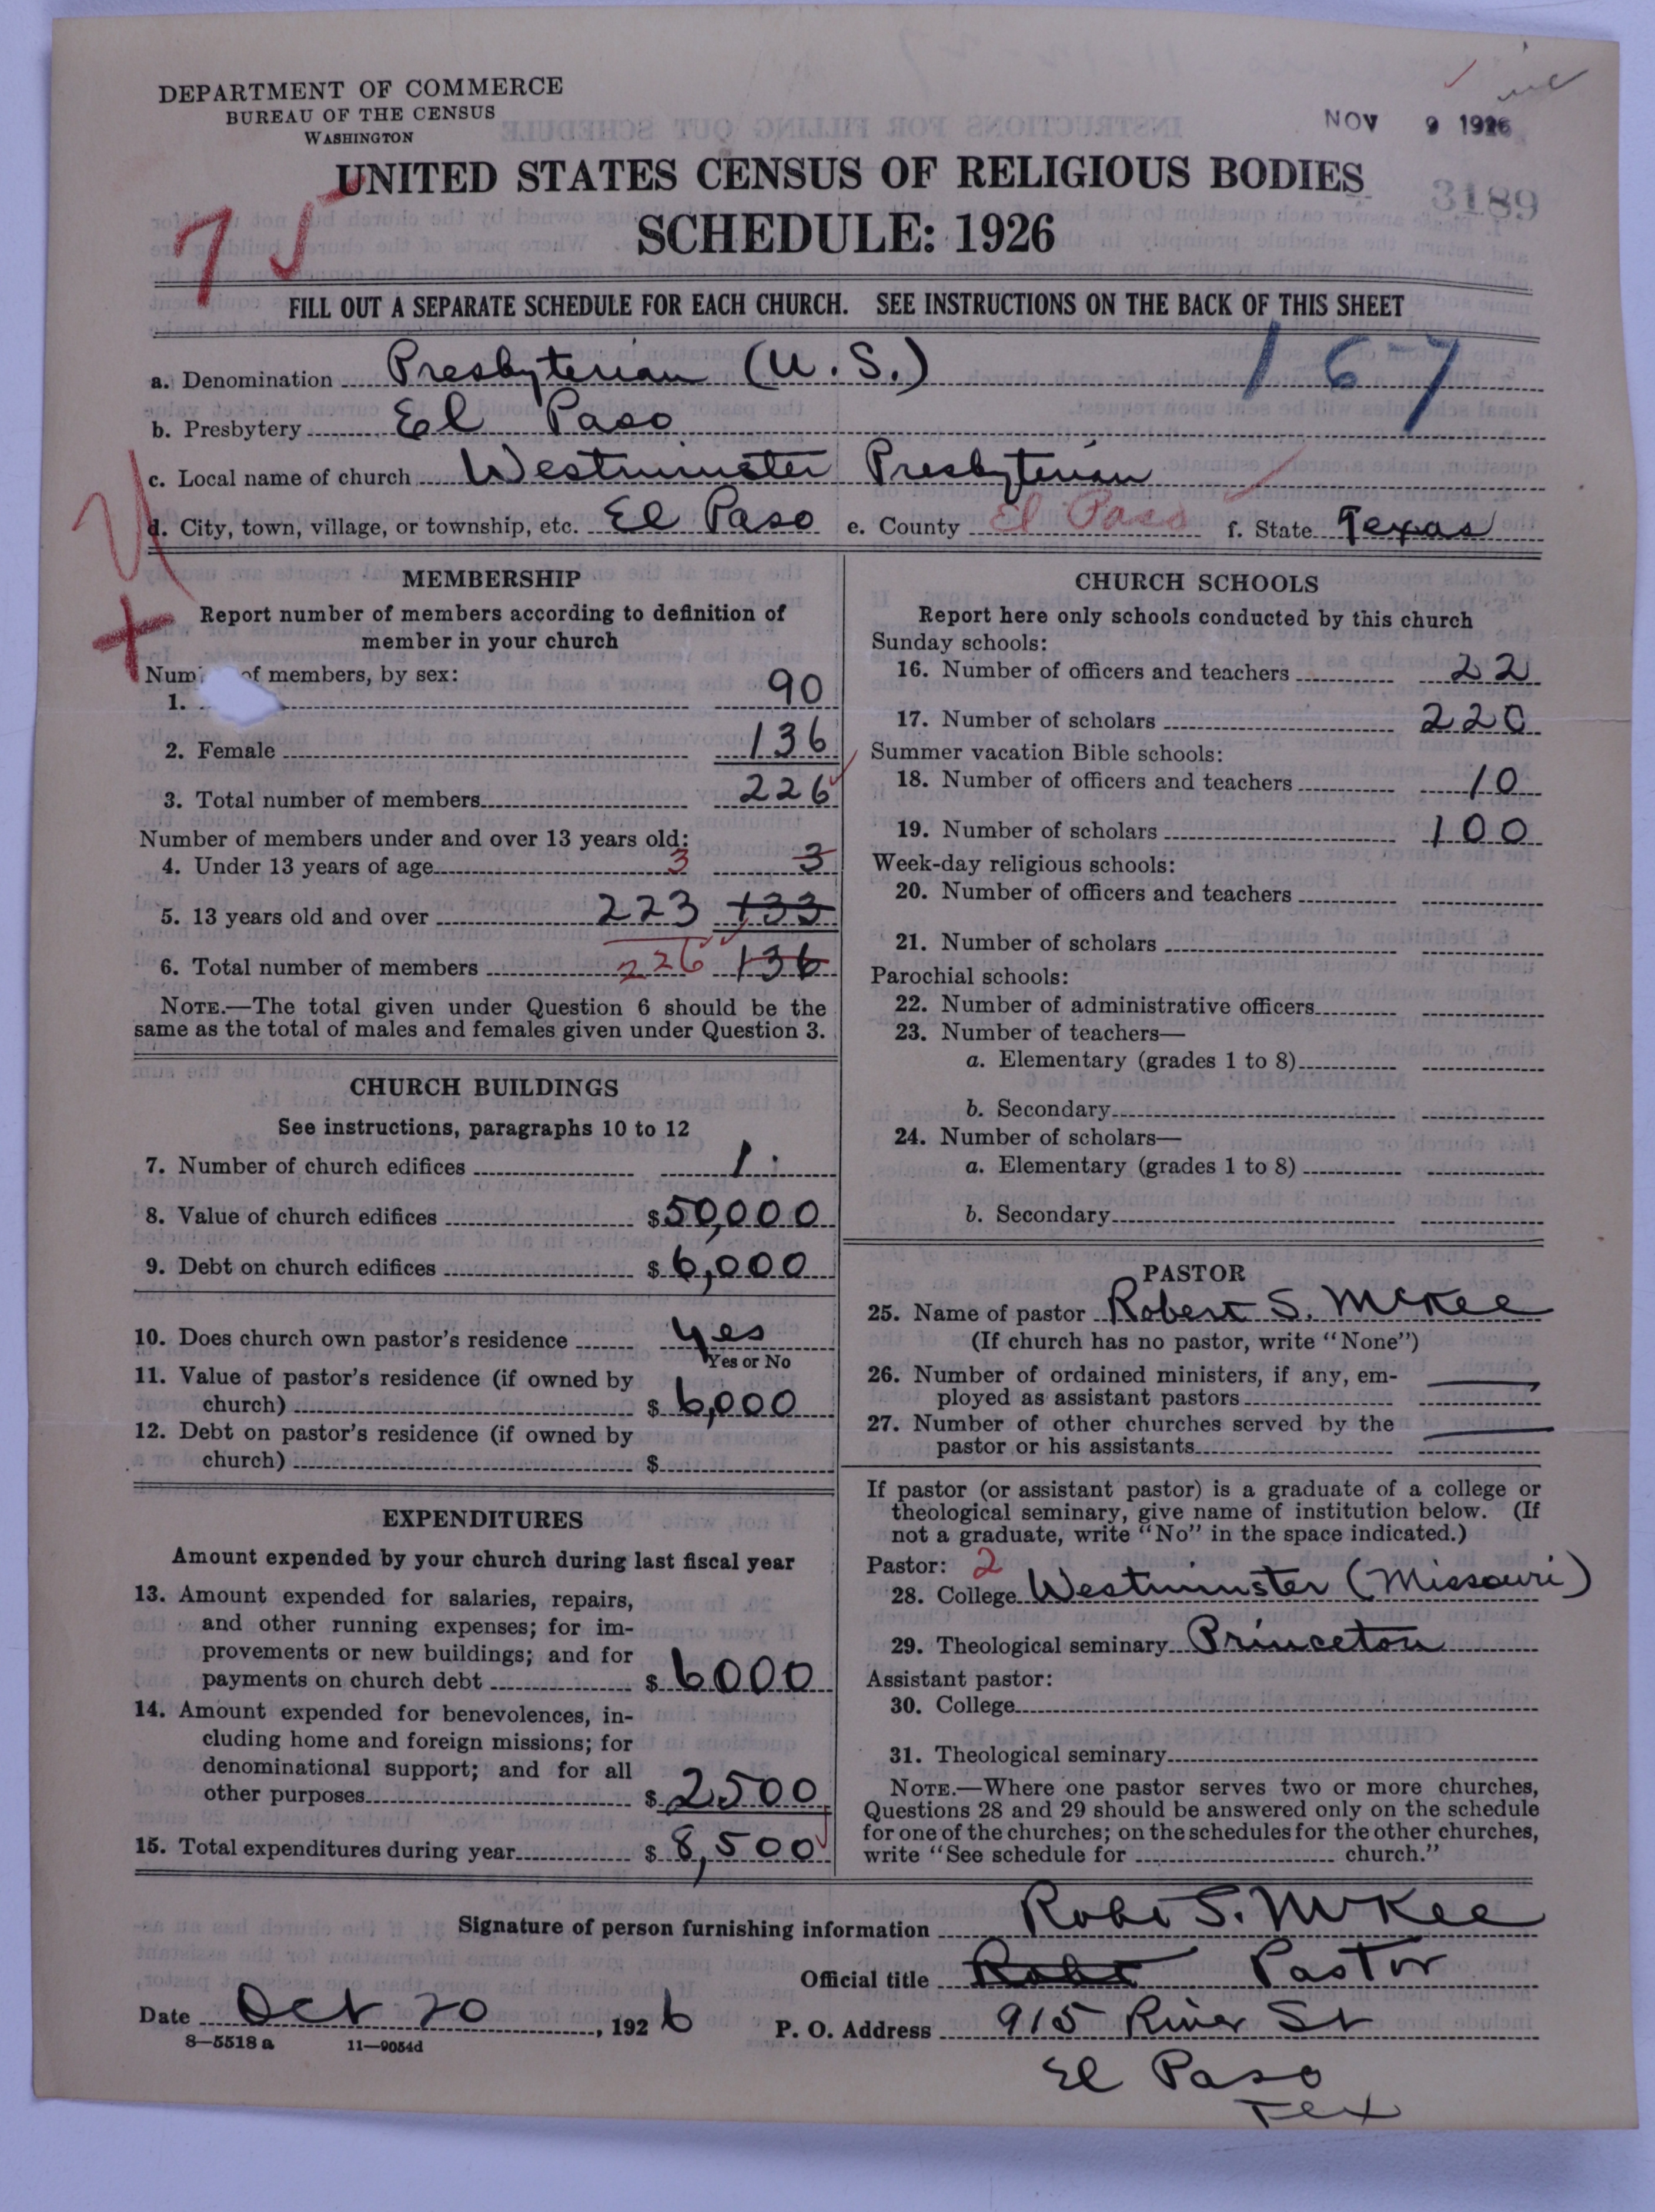 DEPARTMENT OF COMMERCE
BUREAU OF THE CENSUS
WASHINGTON
NOV 9 1926
UNITED STATES CENSUS OF RELIGIOUS BODIES
3189
SCHEDULE: 1926
75
FILL OUT A SEPARATE SCHEDULE FOR EACH CHURCH. SEE INSTRUCTIONS ON THE BACK OF THIS SHEET
167
a. Denomination Presbyterian (U.S.)
b. Presbytery El Paso
c. Local name of church Westminster Presbyterian
d. City, town, village, or township, etc. El Paso e. County El Paso f. State Texas
MEMBERSHIP
Report number of members according to definition of
member in your church
of members, by sex:
1. 90
2. Female 136
3. Total number of members 226
Number of members under and over 13 years old:
4. Under 13 years of age 3 3
5. 13 years old and over 223 133
6. Total number of members 226 136
NOTE.—The total given under Question 6 should be the
same as the total of males and females given under Question 3.
CHURCH BUILDINGS
See instructions, paragraphs 10 to 12
7. Number of church edifices 1
8. Value of church edifices $50,000
9. Debt on church edifices $6,000
10. Does church own pastor's residence yes
Yes or No
11. Value of pastor's residence (if owned by
church) $6,000
12. Debt on pastor's residence (if owned by
church) $
EXPENDITURES
Amount expended by your church during last fiscal year
13. Amount expended for salaries, repairs,
and other running expenses; for im-
provements or new buildings; and for
payments on church debt $6000
14. Amount expended for benevolences, in-
cluding home and foreign missions; for
denominational support; and for all
other purposes $2500
15. Total expenditures during year $8,500
CHURCH SCHOOLS
Report here only schools conducted by this church
Sunday schools:
16. Number of officers and teachers 22
17. Number of scholars 220
Summer vacation Bible schools:
18. Number of officers and teachers 10
19. Number of scholars 100
Week-day religious schools:
20. Number of officers and teachers
21. Number of scholars
Parochial schools:
22. Number of administrative officers
23. Number of teachers—
a. Elementary (grades 1 to 8)
b. Secondary
24. Number of scholars—
a. Elementary (grades 1 to 8)
b. Secondary
PASTOR
25. Name of pastor Robert S. McKee
(If church has no pastor, write "None")
26. Number of ordained ministers, if any, em-
ployed as assistant pastors
27. Number of other churches served by the
pastor or his assistants
If pastor (or assistant pastor) is a graduate of a college or
theological seminary, give name of institution below. (If
not a graduate, write "No" in the space indicated.)
Pastor: 2
28. College Westminster (Missouri)
29. Theological seminary Princeton
Assistant pastor:
30. College
31. Theological seminary
NOTE.—Where one pastor serves two or more churches,
Questions 28 and 29 should be answered only on the schedule
for one of the churches; on the schedules for the other churches,
write "See schedule for church."
Signature of person furnishing information Robt S. McKee
Official title Robt Pastor
Date Oct 20, 1926 P. O. Address 915 River St
8—5518a 11—9054d
El Paso
Tex